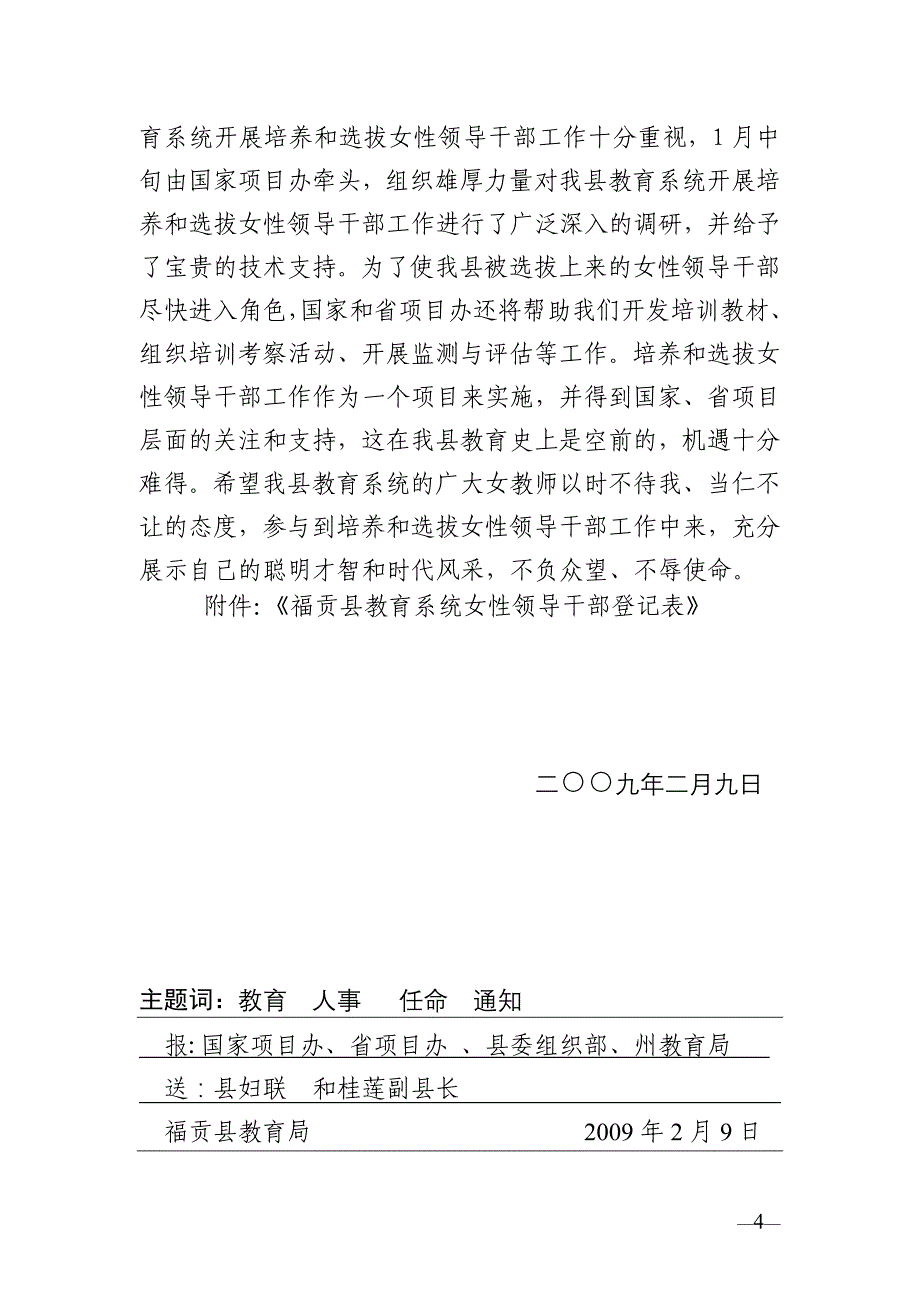 育系统开展培养和选拔女性领导干部工作十分重视，1 月中
旬由国家项目办牵头，组织雄厚力量对我县教育系统开展培
养和选拔女性领导干部工作进行了广泛深入的调研，并给予
了宝贵的技术支持。为了使我县被选拔上来的女性领导干部
尽快进入角色，国家和省项目办还将帮助我们开发培训教材、
组织培训考察活动、开展监测与评估等工作。培养和选拔女
性领导干部工作作为一个项目来实施，并得到国家、省项目
层面的关注和支持，这在我县教育史上是空前的，机遇十分
难得。希望我县教育系统的广大女教师以时不待我、当仁不
让的态度，参与到培养和选拔女性领导干部工作中来，充分
展示自己的聪明才智和时代风采，不负众望、不辱使命。
附件：《福贡县教育系统女性领导干部登记表》
二〇〇九年二月九日
主题词：教育 人事 任命 通知
报：国家项目办、省项目办 、县委组织部、州教育局
送：县妇联 和桂莲副县长
福贡县教育局 2009 年 2 月 9 日
4